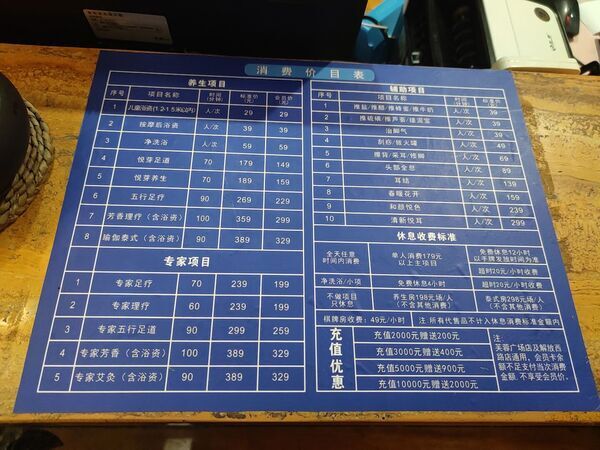 消费价目表
养生项目
序号 项目名称 时间(分钟) 标准价(元) 会员价(元)
1 儿童浴资(1.2-1.5米以内) 人/次 29 29
2 按摩后浴资 人/次 39 39
3 净洗浴 人/次 59 59
4 悦芽足道 70 179 149
5 悦芽养生 70 189 159
6 五行足疗 90 269 229
7 芳香理疗(含浴资) 100 359 299
8 瑜伽泰式(含浴资) 90 389 329
专家项目
1 专家足疗 70 239 199
2 专家理疗 60 239 199
3 专家五行足道 90 299 259
4 专家芳香(含浴资) 100 389 329
5 专家艾灸(含浴资) 90 389 329
辅助项目
序号 项目名称 时间(分钟) 标准价(元)
1 推盐/推醋/推蜂蜜/推牛奶 人/次 39
2 推硫磺/推芦荟/搓泥宝 人/次 39
3 治脚气 人/次 39
4 刮痧/拔火罐 人/次 49
5 推背/采耳/修脚 人/次 69
6 头部全息 人/次 89
7 耳结 人/次 139
8 春暖花开 人/次 159
9 和颜悦色 人/次 239
10 清新悦耳 人/次 299
休息收费标准
全天任意时间内消费 单人消费179元以上主项目 免费休息12小时以手牌发放时间为准
超时20元/小时收费
净洗浴/小项 免费休息4小时 超时20元/小时收费
不做项目只休息 养生房198元场/人(不含其他消费) 泰式房298元场/人(不含其他消费)
棋牌房收费:49元/小时 注:所有代售品不计入休息消费标准金额内
充值优惠
充值2000元赠送200元
充值3000元赠送400元
充值5000元赠送900元
充值10000元赠送2000元
注:
芙蓉广场店及解放西路店通用,会员卡余额不足支付当次消费金额,不享受会员价。